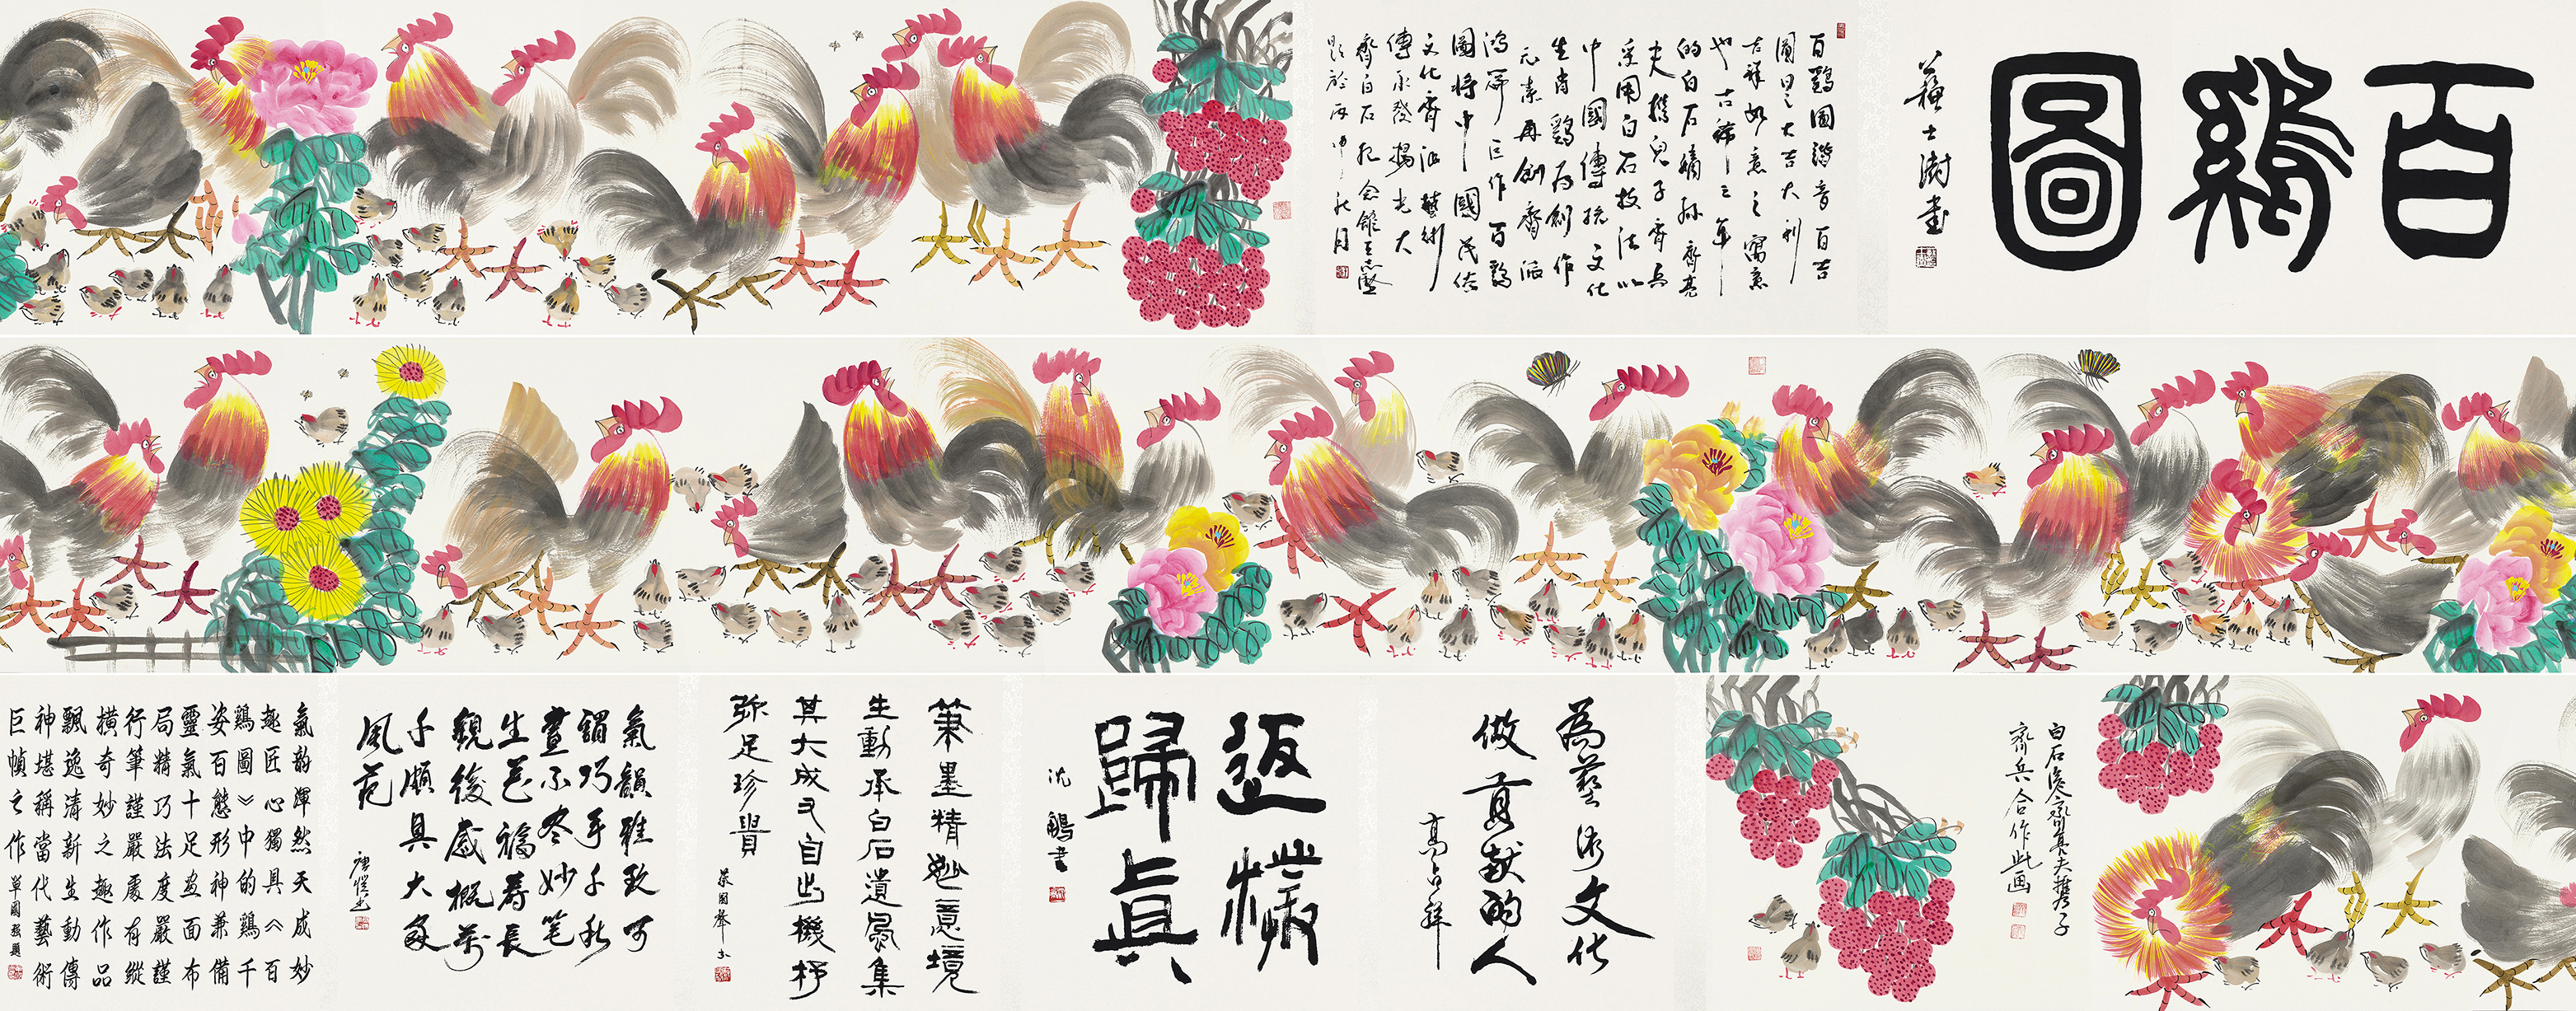 百鷄圖
蘇士澍書
百鷄圖諧音百吉
圖因之大吉大利
吉祥如意之寓意
也古稀之年
的白石嫡孫齊
夫携兒子齊兵
采用白石技法以
中國傳統文化
生肖鷄為創作
元素再創齊派
鴻篇巨作百鷄
圖將中國民俗
文化齊派藝術
傳承發揚光大
齊白石紀念館王志堅
題於丙申年秋月
白石後裔齊夫携子
齊兵合作此画
為藝術文化
做貢獻的人
高占祥
返樸
歸眞
沈鵬書
筆墨精妙意境
生動承白石遺風集
其大成又自出機杼
弥足珍貴
氣韻雅致可
謂巧手千秋
畫不尽妙笔
生花福壽長
觀後感概萬
千頗具大家
風范
氣韵渾然天成妙
趣匠心獨具《百
鷄圖》中的鷄千
姿百態形神兼備
靈氣十足画面布
局精巧法度嚴謹
行筆謹嚴處有縱
橫奇妙之趣作品
飄逸清新生動傳
神堪稱當代藝術
巨幀之作 單國强題